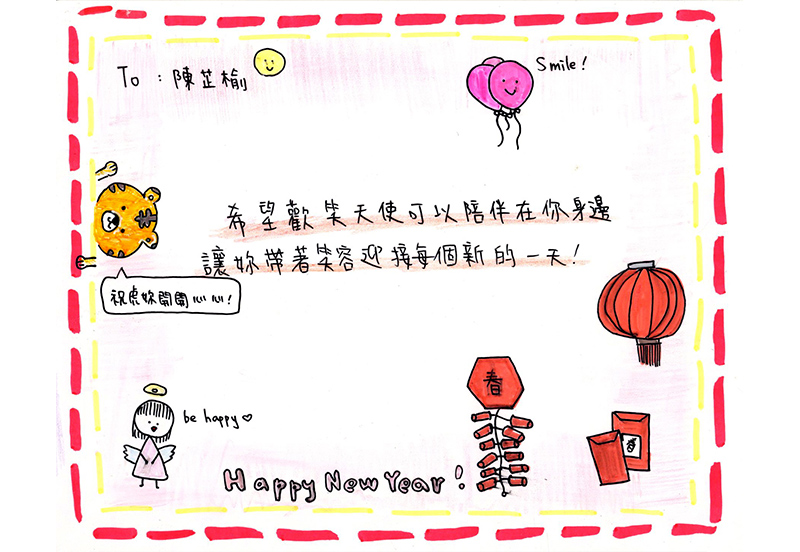 To : 陳芷榆
Smile!
希望歡笑天使可以陪伴在你身邊
讓妳帶著笑容迎接每個新的一天!
祝虎妳開開心心!
be happy♡
春
春
Happy New Year!